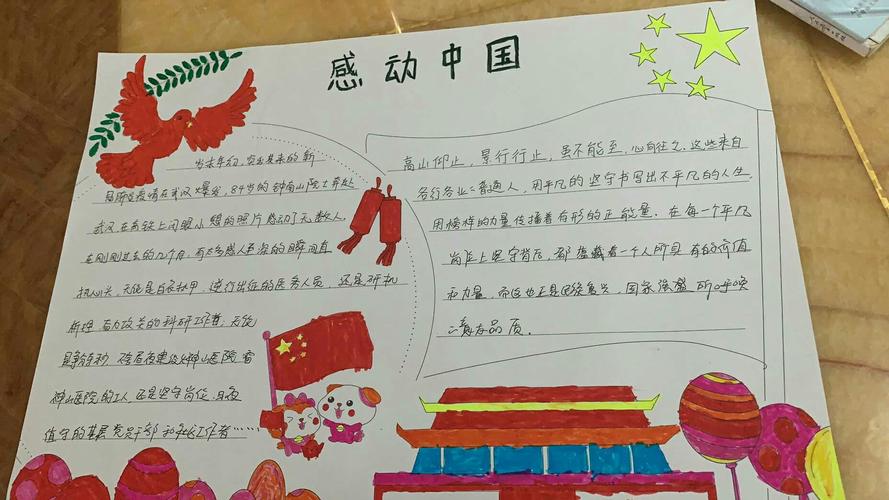 感动中国
岁末年初，突如其来的新
冠肺炎疫情在武汉爆发，84岁的钟南山院士奔赴
武汉在高铁上闭眼小憩的照片感动了无数人。
在刚刚过去的几个月，有太多感人至深的瞬间直
抵人心头，无论是白衣执甲、逆行出征的医务人员，还是研机
析理 奋力攻关的科研工作者；无论
是争分夺秒、昼夜建设火神山医院 雷
神山医院的工人，还是坚守岗位、日夜
值守的基层党员干部 和社区工作者……
高山仰止，景行行止，虽不能至，心向往之，这些来自
各行各业的普通人，用平凡的坚守书写出不平凡的人生，
用榜样的力量传播着有形的正能量。在每一个平凡
岗位上坚守背后，都蕴藏着一个人所具有的价值
和力量，而这也正是民族复兴，国家强盛 所呼唤
的 品质。